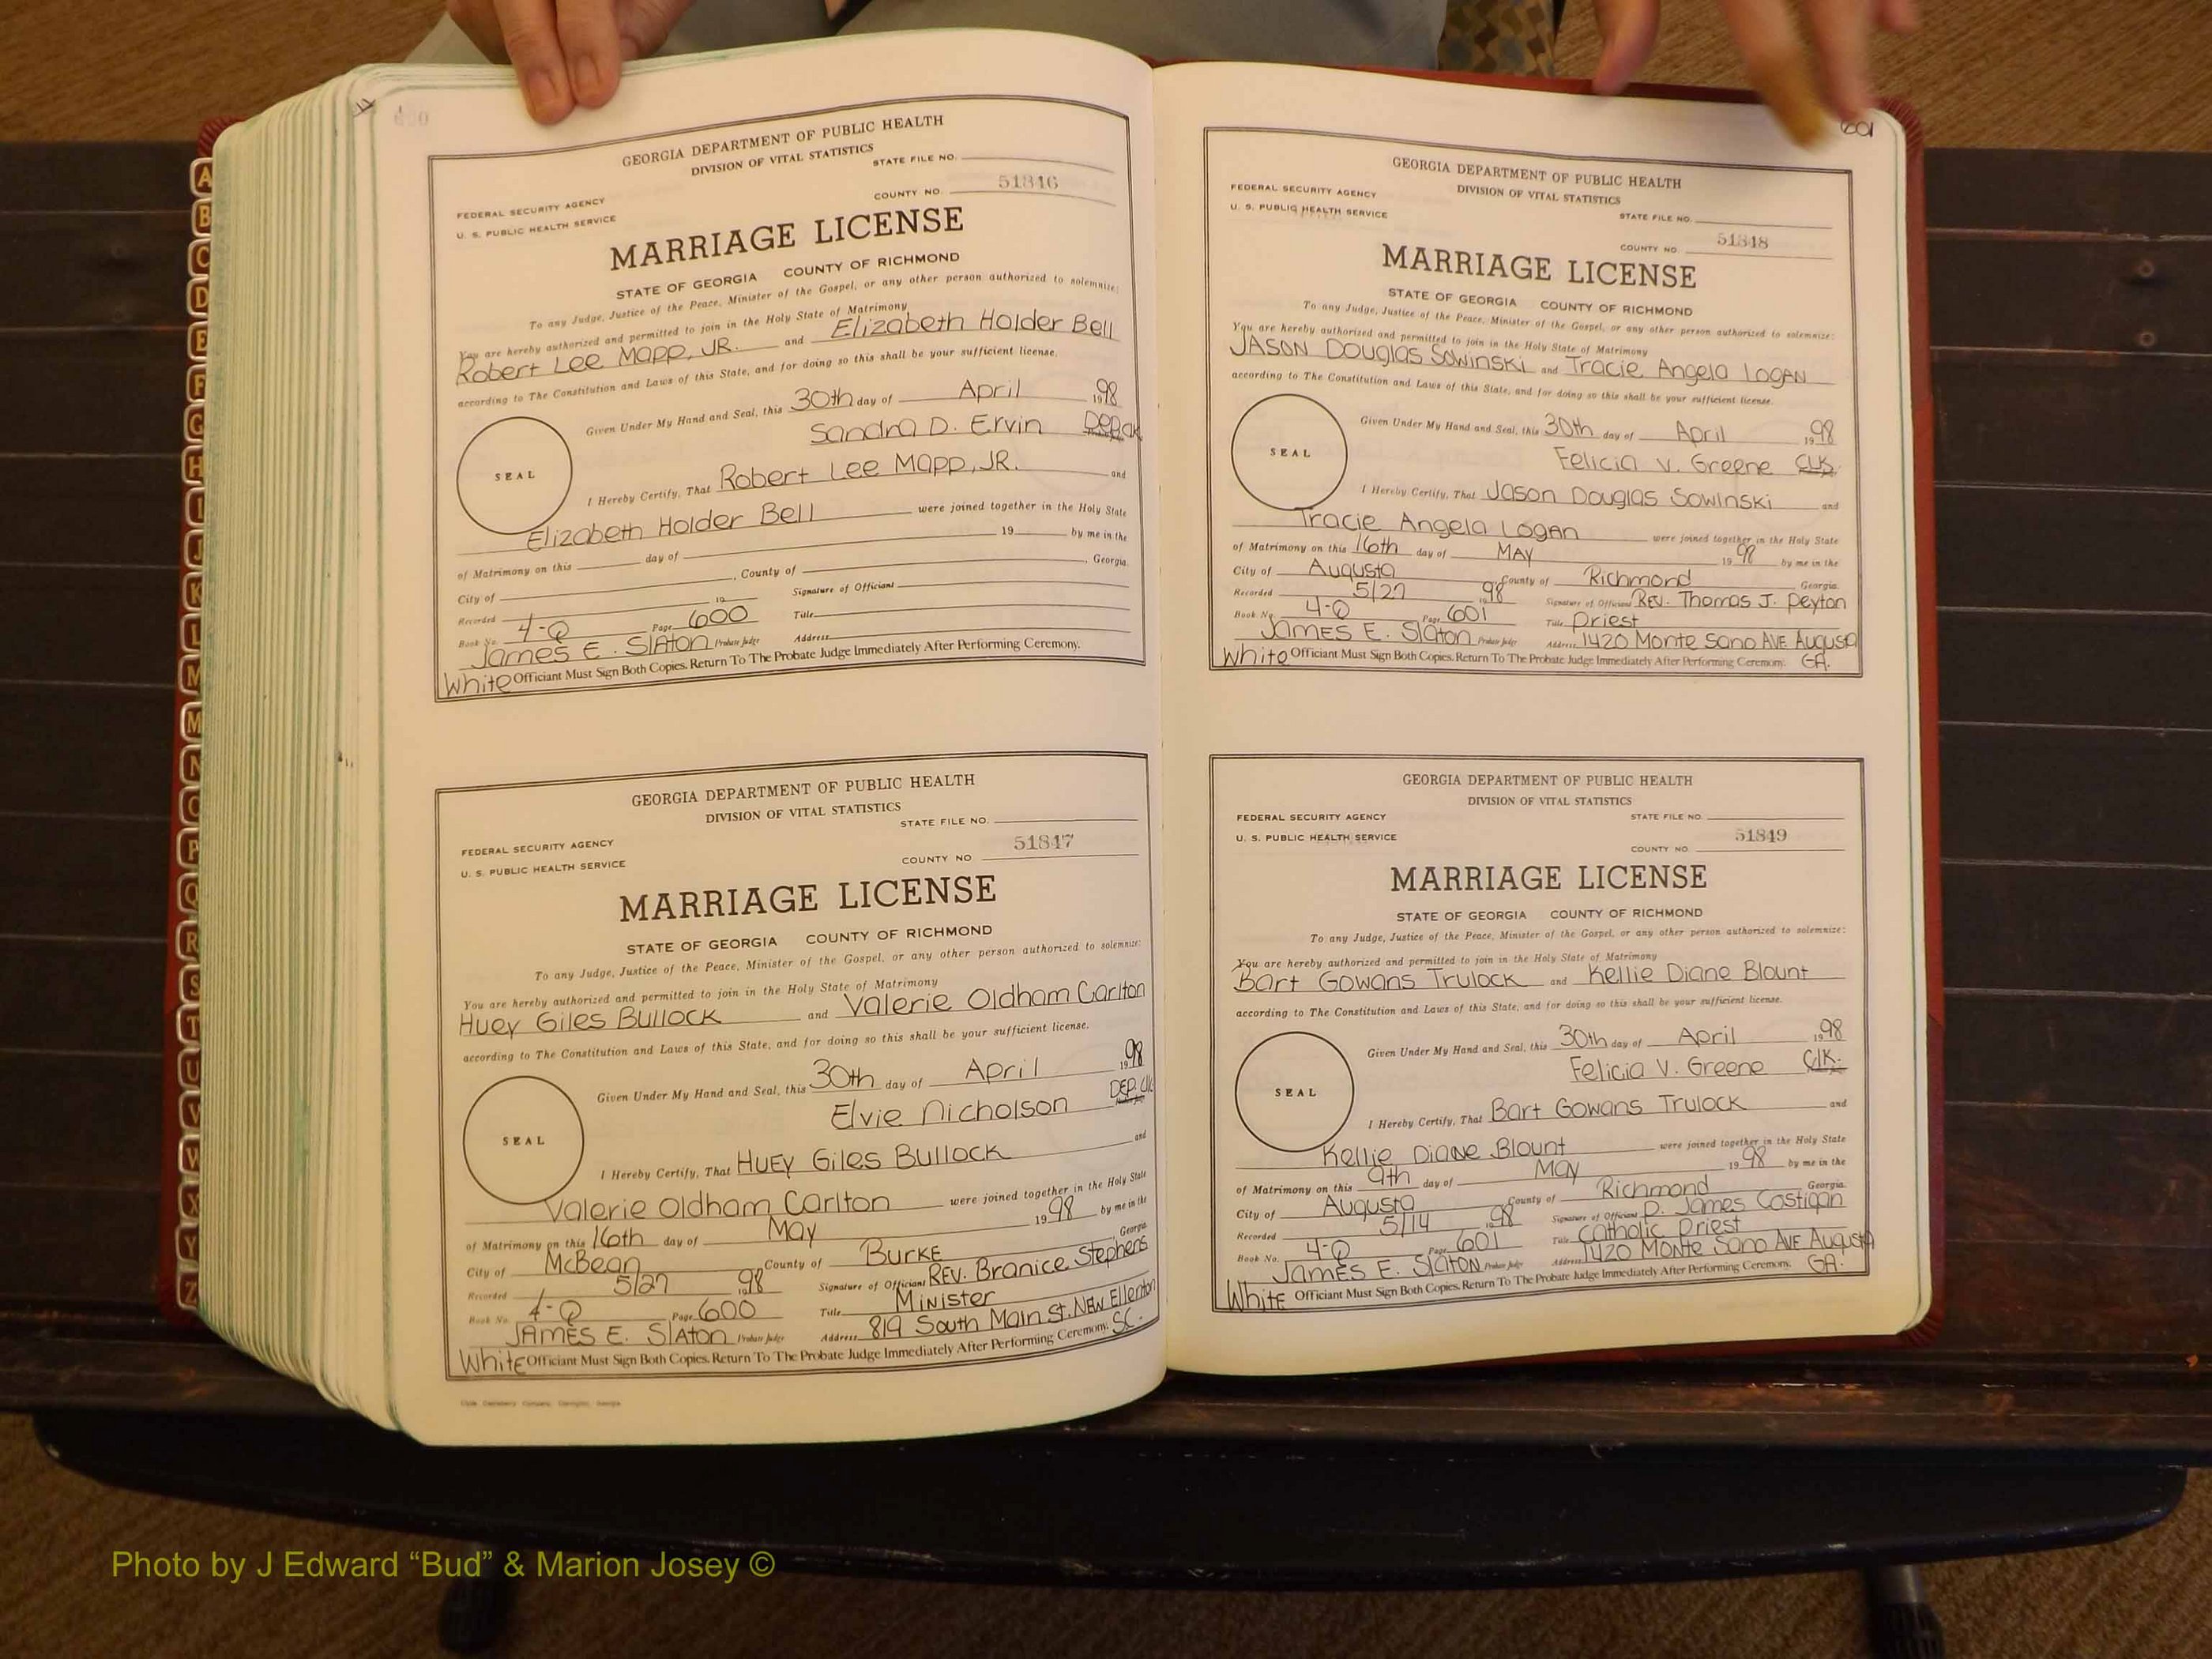 A
B
C
D
E
F
G
H
I
J
K
L
M
M
N
O
P
Q
R
S
T
U
V
W
X
Y
Z
600
GEORGIA DEPARTMENT OF PUBLIC HEALTH
DIVISION OF VITAL STATISTICS
STATE FILE NO.
FEDERAL SECURITY AGENCY
COUNTY NO. 51846
U. S. PUBLIC HEALTH SERVICE
MARRIAGE LICENSE
STATE OF GEORGIA COUNTY OF RICHMOND
To any Judge, Justice of the Peace, Minister of the Gospel, or any other person authorized to solemnize:
You are hereby authorized and permitted to join in the Holy State of Matrimony
Robert Lee Mapp, JR. and Elizabeth Holder Bell
according to The Constitution and Laws of this State, and for doing so this shall be your sufficient license.
Given Under My Hand and Seal, this 30th day of April 1998
Sandra D. Ervin Dep. Clk
SEAL
I Hereby Certify, That Robert Lee Mapp, JR. and
Elizabeth Holder Bell were joined together in the Holy State
of Matrimony on this day of 19 by me in the
City of , County of , Georgia.
Recorded 19 Signature of Officiant
Book No. 4-Q Page 600 Title
James E. Slaton Probate Judge Address
White Officiant Must Sign Both Copies. Return To The Probate Judge Immediately After Performing Ceremony.
GEORGIA DEPARTMENT OF PUBLIC HEALTH
DIVISION OF VITAL STATISTICS
STATE FILE NO.
FEDERAL SECURITY AGENCY
COUNTY NO 51847
U. S. PUBLIC HEALTH SERVICE
MARRIAGE LICENSE
STATE OF GEORGIA COUNTY OF RICHMOND
To any Judge, Justice of the Peace, Minister of the Gospel, or any other person authorized to solemnize:
You are hereby authorized and permitted to join in the Holy State of Matrimony
Huey Giles Bullock and Valerie Oldham Carlton
according to The Constitution and Laws of this State, and for doing so this shall be your sufficient license.
Given Under My Hand and Seal, this 30th day of April 1998
Elvie Nicholson DEP. Clk
SEAL
I Hereby Certify, That Huey Giles Bullock and
Valerie Oldham Carlton were joined together in the Holy State
of Matrimony on this 16th day of May 1998 by me in the
City of McBean County of Burke Georgia
Recorded 5/27 1998 Signature of Officiant Rev. Branice Stephens
Book No. 4-Q Page 600 Title Minister
James E. Slaton Probate Judge Address 819 South Main St. New Ellenton SC.
White Officiant Must Sign Both Copies. Return To The Probate Judge Immediately After Performing Ceremony.
601
GEORGIA DEPARTMENT OF PUBLIC HEALTH
DIVISION OF VITAL STATISTICS
FEDERAL SECURITY AGENCY
STATE FILE NO.
U. S. PUBLIC HEALTH SERVICE
COUNTY NO. 51848
MARRIAGE LICENSE
STATE OF GEORGIA COUNTY OF RICHMOND
To any Judge, Justice of the Peace, Minister of the Gospel, or any other person authorized to solemnize:
You are hereby authorized and permitted to join in the Holy State of Matrimony
Jason Douglas Sowinski and Tracie Angela Logan
according to The Constitution and Laws of this State, and for doing so this shall be your sufficient license.
Given Under My Hand and Seal, this 30th day of April 1998
Felicia V. Greene CLK.
SEAL
I Hereby Certify, That Jason Douglas Sowinski and
Tracie Angela Logan were joined together in the Holy State
of Matrimony on this 16th day of May 1998 by me in the
City of Augusta County of Richmond Georgia.
Recorded 5/27 1998 Signature of Officiant Rev. Thomas J. Peyton
Book No. 4-Q Page 601 Title Priest
James E. Slaton Probate Judge Address 1420 Monte Sano AVE Augusta GA.
White Officiant Must Sign Both Copies. Return To The Probate Judge Immediately After Performing Ceremony.
GEORGIA DEPARTMENT OF PUBLIC HEALTH
DIVISION OF VITAL STATISTICS
FEDERAL SECURITY AGENCY
STATE FILE NO.
U. S. PUBLIC HEALTH SERVICE
COUNTY NO. 51849
MARRIAGE LICENSE
STATE OF GEORGIA COUNTY OF RICHMOND
To any Judge, Justice of the Peace, Minister of the Gospel, or any other person authorized to solemnize:
You are hereby authorized and permitted to join in the Holy State of Matrimony
Bart Gowans Trulock and Kellie Diane Blount
according to The Constitution and Laws of this State, and for doing so this shall be your sufficient license.
Given Under My Hand and Seal, this 30th day of April 1998
Felicia V. Greene Clk.
SEAL
I Hereby Certify, That Bart Gowans Trulock and
Kellie Diane Blount were joined together in the Holy State
of Matrimony on this 9th day of May 1998 by me in the
City of Augusta County of Richmond Georgia.
Recorded 5/14 1998 Signature of Officiant P. James Costigan
Book No. 4-Q Page 601 Title Catholic Priest
James E. Slaton Probate Judge Address 1420 Monte Sano AVE Augusta GA.
White Officiant Must Sign Both Copies. Return To The Probate Judge Immediately After Performing Ceremony.
Photo by J Edward “Bud” & Marion Josey ©